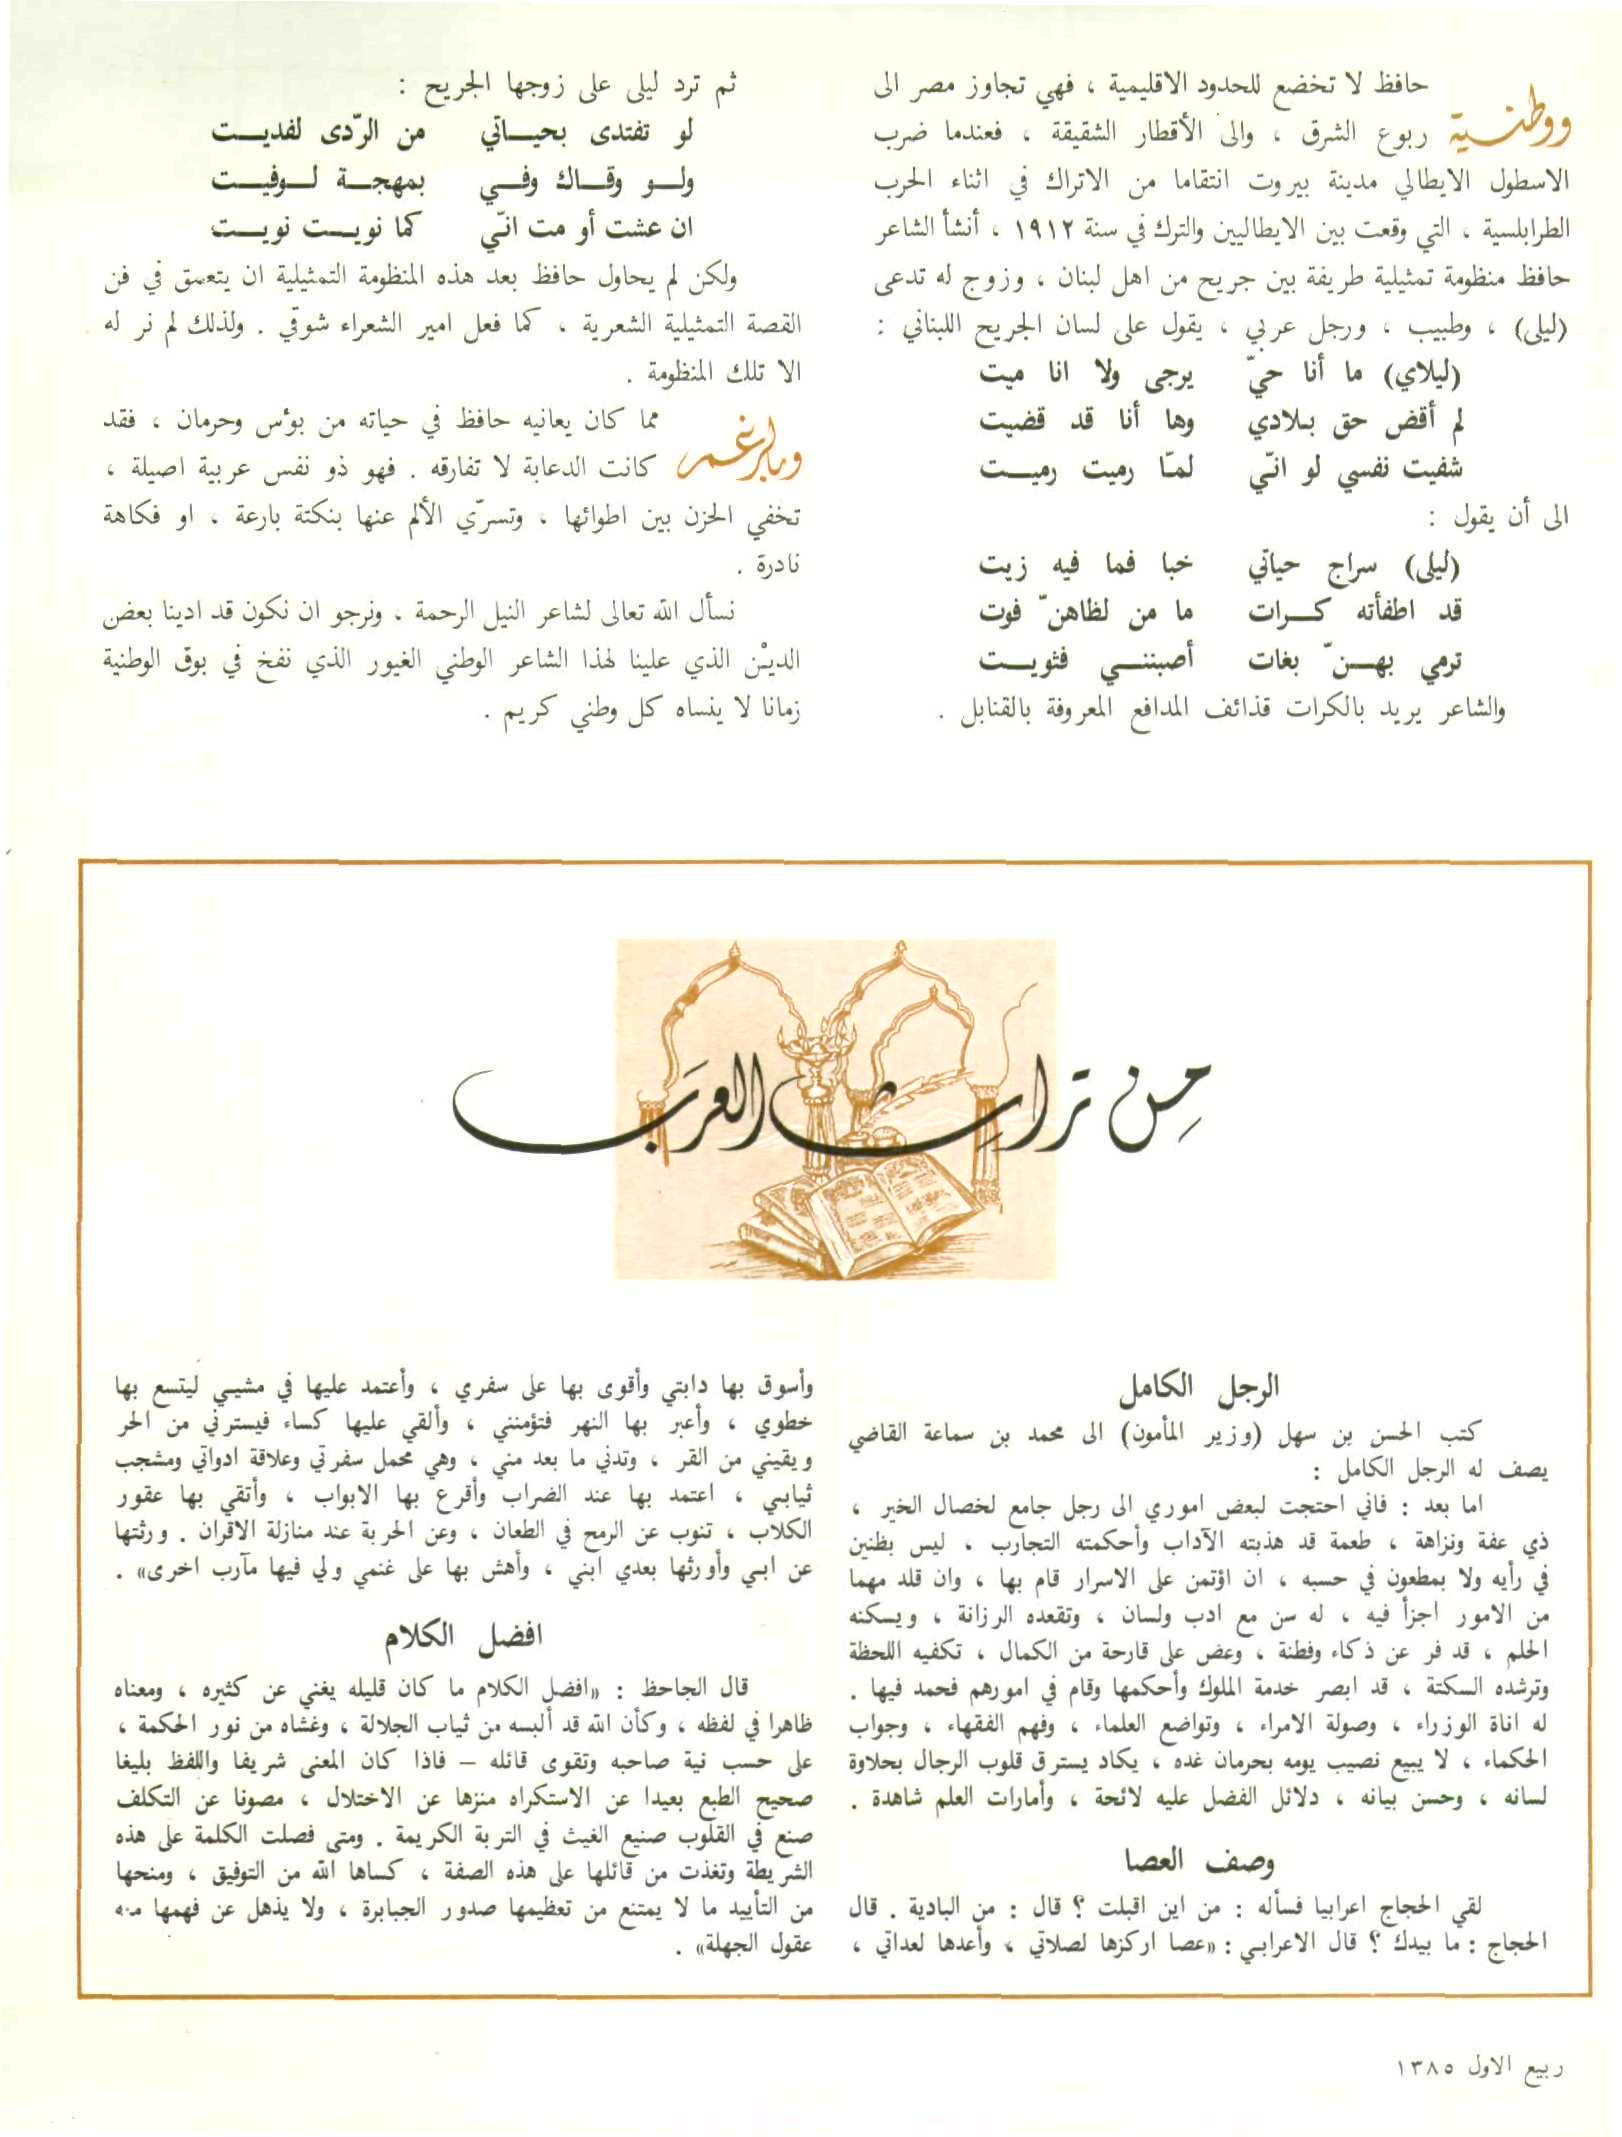 ووطنية حافظ لا تخضع للحدود الاقليمية ، فهي تجاوز مصر الى
ربوع الشرق ، والى الأقطار الشقيقة ، فعندما ضرب
الاسطول الايطالي مدينة بيروت انتقاما من الاتراك في اثناء الحرب
الطرابلسية ، التي وقعت بين الايطاليين والترك في سنة ١٩١٢ ، أنشأ الشاعر
حافظ منظومة تمثيلية طريفة بين جريح من اهل لبنان ، وزوج له تدعى
(ليلى) ، وطبيب ، ورجل عربي ، يقول على لسان الجريح اللبناني :
(ليلاي) ما أنا حيّ يرجى ولا انا ميت
لم أقض حق بلادي وها أنا قد قضيت
شفيت نفسي لو انّي لمّا رميت رميـــت
الى أن يقول :
(ليلى) سراج حياتي خبا فما فيه زيت
قد اطفأته كـــرات ما من لظاهنّ فوت
ترمي بهـــنّ بغات أصبننـــي فثويـــت
والشاعر يريد بالكرات قذائف المدافع المعروفة بالقنابل .
ثم ترد ليلى على زوجها الجريح :
لو تفتدى بحيـــاتي من الرّدى لفديـــت
ولـــو وقـــاك وفـــي بمهجـــة لـــوفيـــت
ان عشت أو مت انّي كما نويـــت نويـــت
ولكن لم يحاول حافظ بعد هذه المنظومة التمثيلية ان يتعمق في فن
القصة التمثيلية الشعرية ، كما فعل امير الشعراء شوقي . ولذلك لم نر له
الا تلك المنظومة .
وبالرغم مما كان يعانيه حافظ في حياته من بؤس وحرمان ، فقد
كانت الدعابة لا تفارقه . فهو ذو نفس عربية اصيلة ،
تخفي الحزن بين اطوائها ، وتسرّي الألم عنها بنكتة بارعة ، او فكاهة
نادرة .
نسأل الله تعالى لشاعر النيل الرحمة ، ونرجو ان نكون قد ادينا بعض
الديْن الذي علينا لهذا الشاعر الوطني الغيور الذي نفخ في بوق الوطنية
زمانا لا ينساه كل وطني كريم .
مِن تراثِ العرَب
الرجل الكامل
كتب الحسن بن سهل (وزير المأمون) الى محمد بن سماعة القاضي
يصف له الرجل الكامل :
اما بعد : فاني احتجت لبعض اموري الى رجل جامع لخصال الخير ،
ذي عفة ونزاهة ، طعمة قد هذبته الآداب وأحكمته التجارب ، ليس بظنين
في رأيه ولا بمطعون في حسبه ، ان اؤتمن على الاسرار قام بها ، وان قلد مهما
من الامور اجزأ فيه ، له سن مع ادب ولسان ، وتقعده الرزانة ، ويسكنه
الحلم ، قد فر عن ذكاء وفطنة ، وعض على قارحة من الكمال ، تكفيه اللحظة
وترشده السكتة ، قد ابصر خدمة الملوك وأحكمها وقام في امورهم فحمد فيها .
له اناة الوزراء ، وصولة الامراء ، وتواضع العلماء ، وفهم الفقهاء ، وجواب
الحكماء ، لا يبيع نصيب يومه بحرمان غده ، يكاد يسترق قلوب الرجال بحلاوة
لسانه ، وحسن بيانه ، دلائل الفضل عليه لائحة ، وأمارات العلم شاهدة .
وصف العصا
لقي الحجاج اعرابيا فسأله : من اين اقبلت ؟ قال : من البادية . قال
الحجاج : ما بيدك ؟ قال الاعرابي : «عصا اركزها لصلاتي ، وأعدها لعداتي ،
وأسوق بها دابتي وأقوى بها على سفري ، وأعتمد عليها في مشيي ليتسع بها
خطوي ، وأعبر بها النهر فتؤمنني ، وألقي عليها كساء فيسترني من الحر
ويقيني من القر ، وتدني ما بعد مني ، وهي محمل سفرتي وعلاقة ادواتي ومشجب
ثيابي ، اعتمد بها عند الضراب وأقرع بها الابواب ، وأتقي بها عقور
الكلاب ، تنوب عن الرمح في الطعان ، وعن الحربة عند منازلة الاقران . ورثتها
عن ابي وأورثها بعدي ابني ، وأهش بها على غنمي ولي فيها مآرب اخرى» .
افضل الكلام
قال الجاحظ : «افضل الكلام ما كان قليله يغني عن كثيره ، ومعناه
ظاهرا في لفظه ، وكأن الله قد ألبسه من ثياب الجلالة ، وغشاه من نور الحكمة ،
على حسب نية صاحبه وتقوى قائله – فاذا كان المعنى شريفا واللفظ بليغا
صحيح الطبع بعيدا عن الاستكراه منزها عن الاختلال ، مصونا عن التكلف
صنع في القلوب صنيع الغيث في التربة الكريمة . ومتى فصلت الكلمة على هذه
الشريطة وتغذت من قائلها على هذه الصفة ، كساها الله من التوفيق ، ومنحها
من التأييد ما لا يمتنع من تعظيمها صدور الجبابرة ، ولا يذهل عن فهمها منه
عقول الجهلة» .
ربيع الاول ١٣٨٥